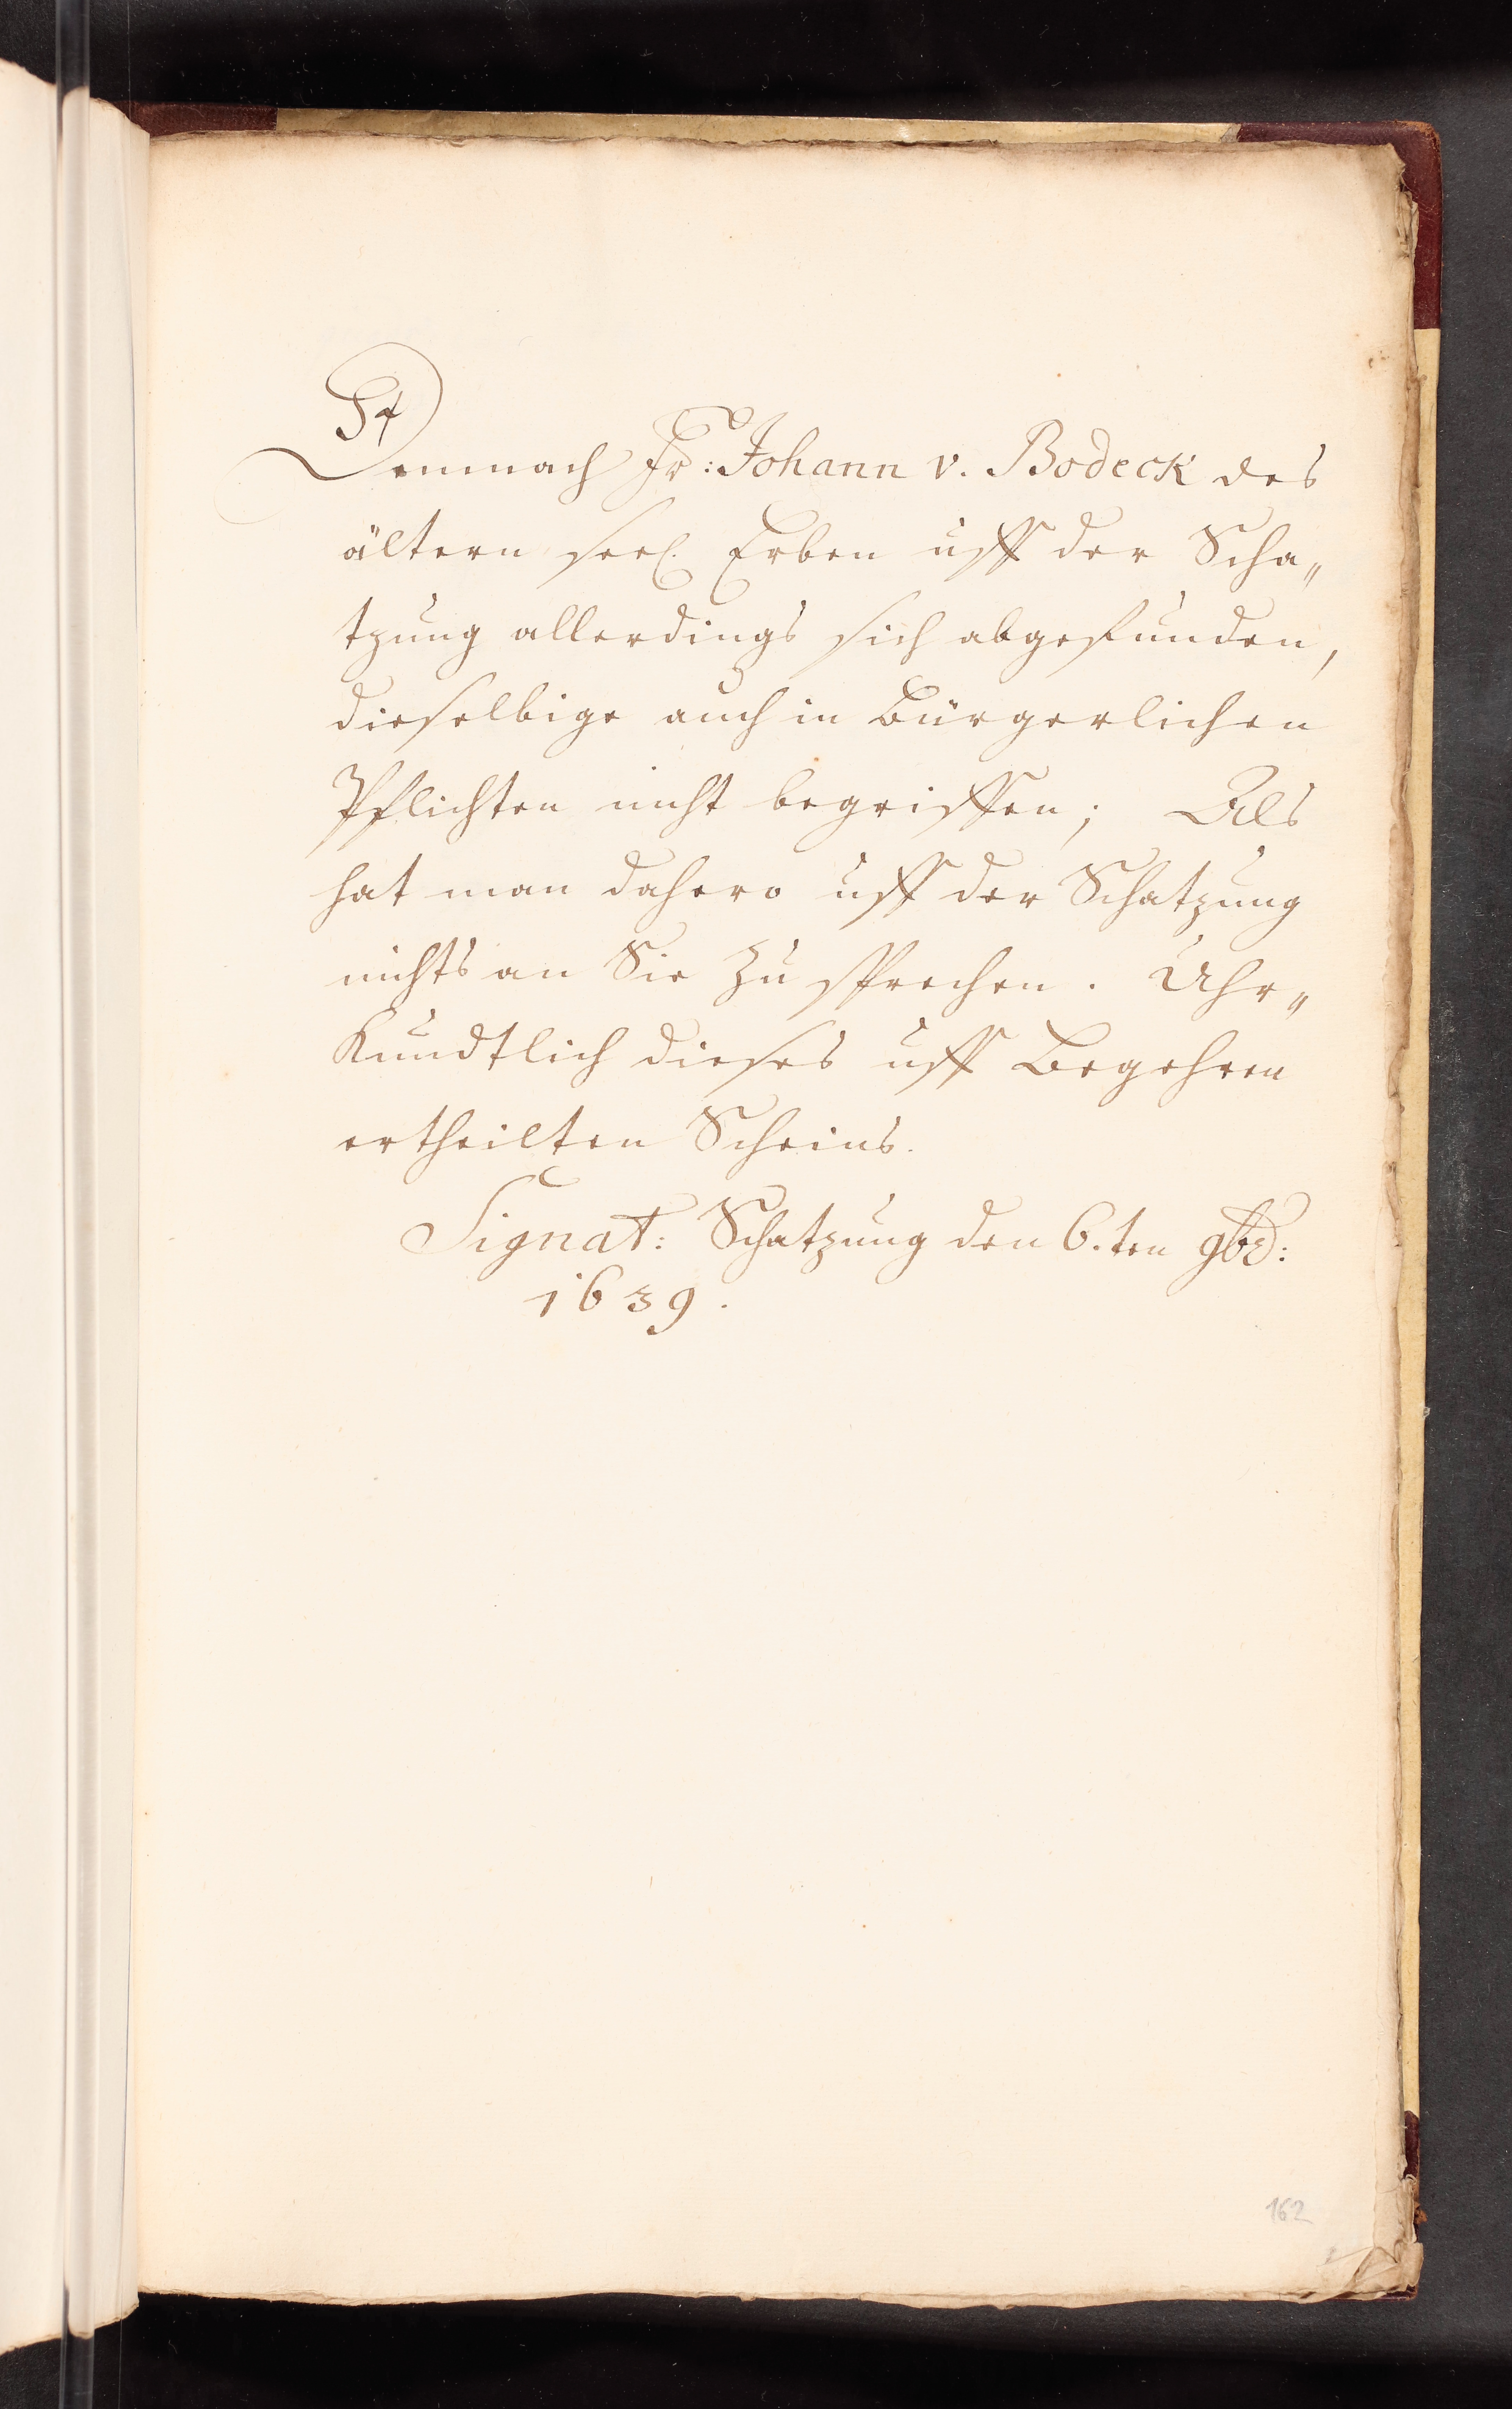 Demnach Hr: Johann v. Bodeck des
ältern seel. Erben uff der Scha„
tzung allerdings sich abgefunden,
dieselbige auch in Bürgerlichen
Pflichten nicht begriffen; Als
hat man dahero uff der Schatzung
nichts an Sie zu sprechen. Uhr„
Kundtlich dieses uff Begehren
ertheilten Scheins.
Signat: Schatzung den 6.ten 9br:
1639.
162